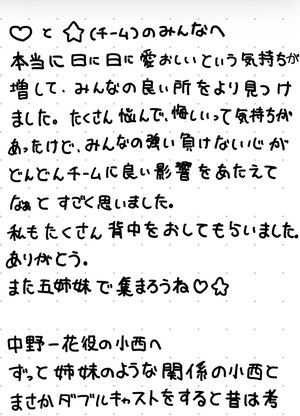 ♡と☆(チーム)のみんなへ
本当に日に日に愛おしいという気持ちが
増して、みんなの良い所をより見つけ
ました。たくさん悩んで、悔しいって気持ちが
あったけど、みんなの強い負けない心が
どんどんチームに良い影響をあたえて
なぁとすごく思いました。
私もたくさん背中をおしてもらいました。
ありがとう。
また五姉妹で集まろうね♡☆
中野一花役の小西へ
ずっと姉妹のような関係の小西と
まさかダブルキャストをすると昔は考